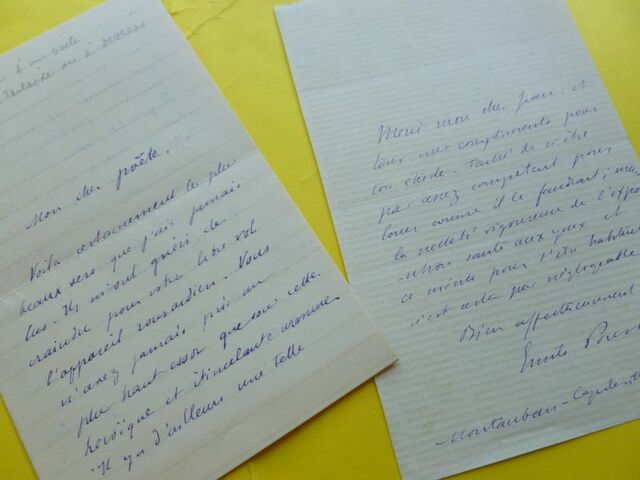 Mon cher poète.
Voilà certainement les plus
beaux vers que j'aie jamais
lus. Ils m'ont guéri de
craindre pour votre libre vol
l'appareil ronsardien. Vous
n'avez jamais pris un
plus haut essor que sous cette
héroïque et étincelante armure
Il y a d'ailleurs une telle
Merci mon cher Jean, et
tous mes compliments pour
ton étude. Fâché de n'être
pas assez compétent pour
louer comme il le faudrait; mais
la netteté vigoureuse de l'expo
sition saute aux yeux et
ce mérite pour s'être habituel
n'est certes pas négligeable
Bien affectueusement
Emile
Montauban - Capdeville